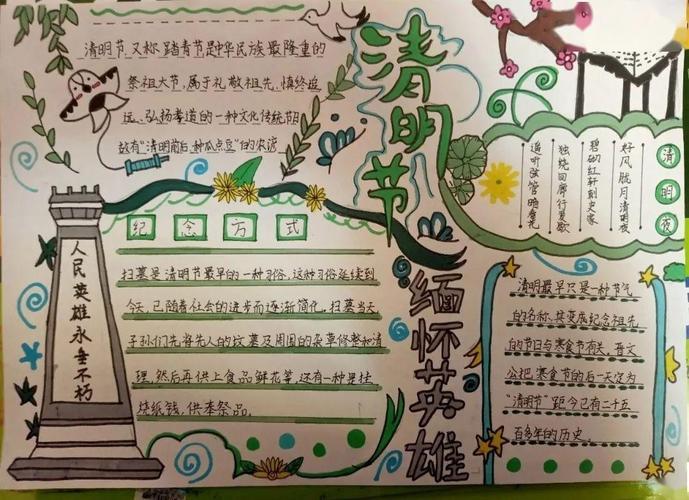 清明节,又称踏青节,是中华民族最隆重的
祭祖大节,属于礼敬祖先、慎终追
远、弘扬孝道的一种文化传统节日
故有"清明前后,种瓜点豆"的农谚
清明节
缅怀英雄
清明夜
好风胧月清明夜
碧砌红轩刺史家
独绕回廊行复歇
遥听弦管暗看花
人民英雄永垂不朽
纪念方式
扫墓是清明节最早的一种习俗,这种习俗延续到
今天,已随着社会的进步而逐渐简化,扫墓当天
子孙们先将先人的坟墓及周围的杂草修整和清
理,然后再供上食品鲜花等,还有一种是挂
烧纸钱,供奉祭品。
清明最早只是一种节气
的名称,其变成纪念祖先
的节日与寒食节有关,晋文
公把寒食节的后一天定为
"清明节"距今已有二十五
百多年的历史。